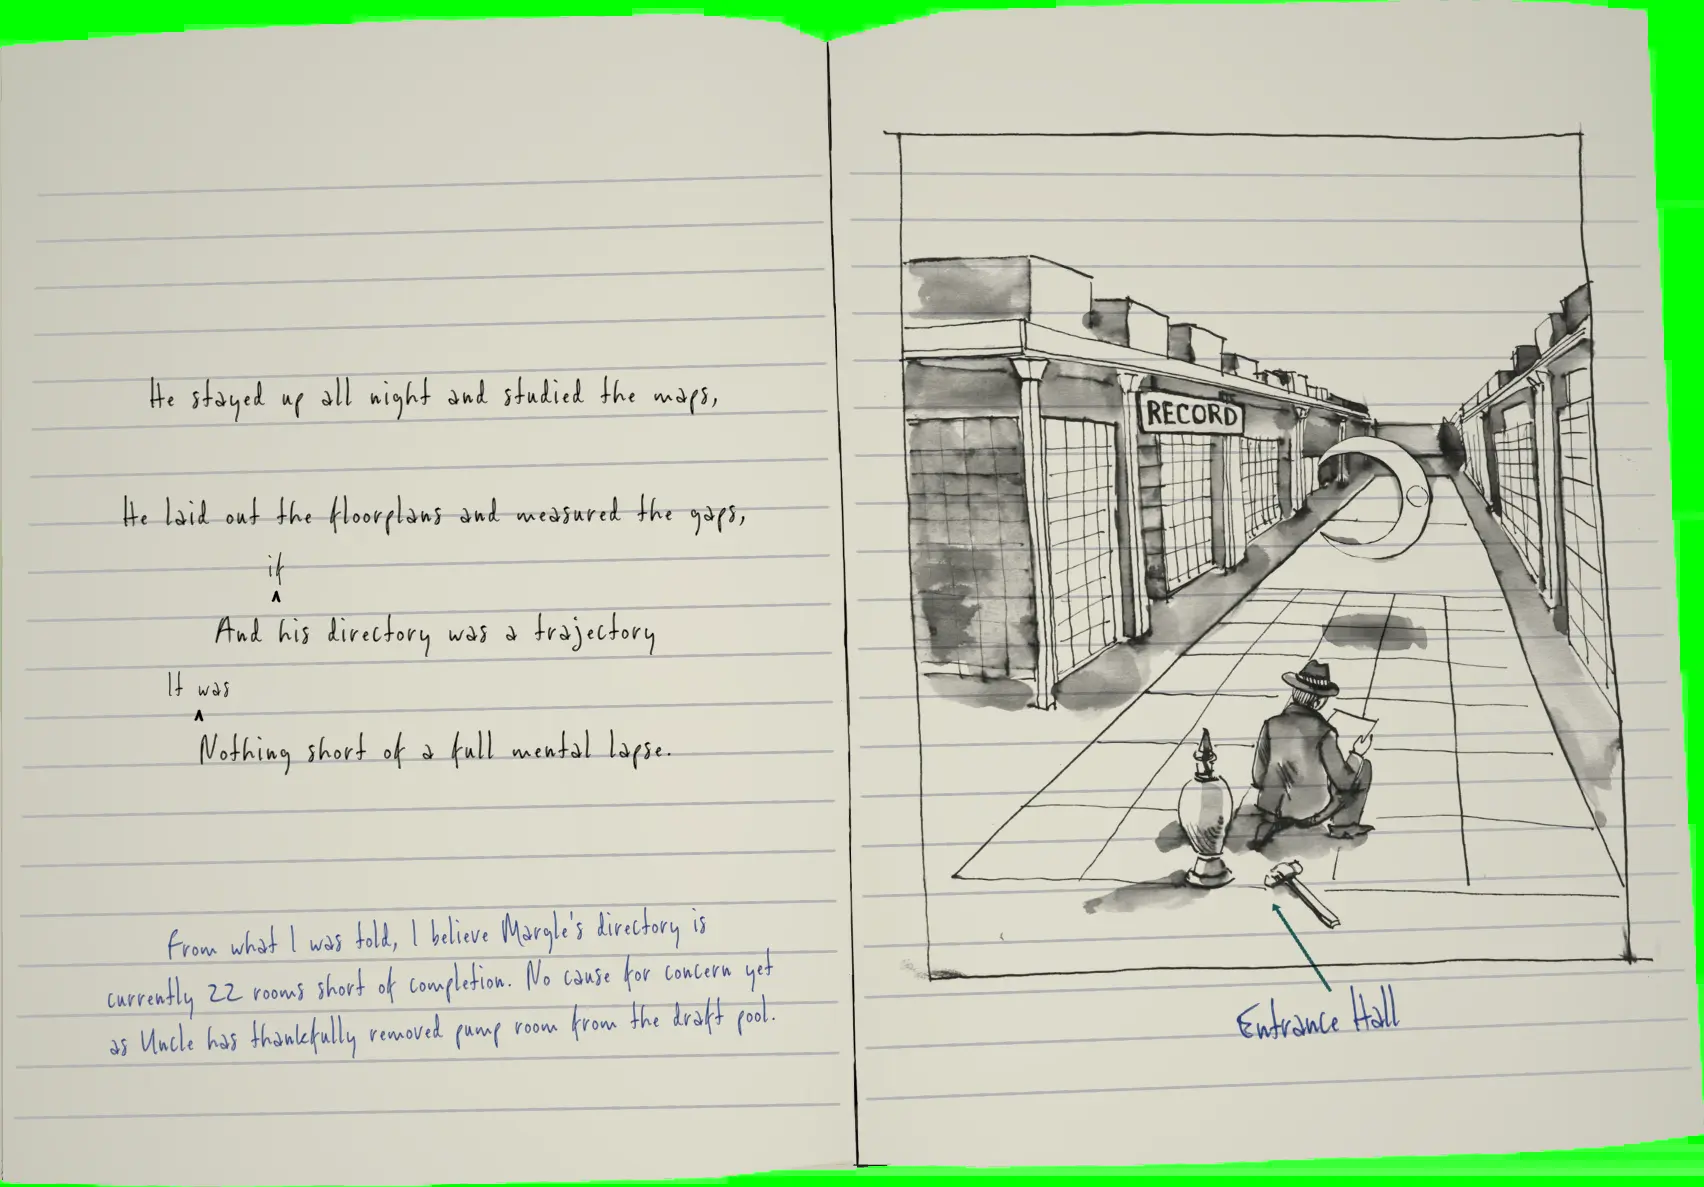 He stayed up all night and studied the maps,
He laid out the floorplans and measured the gaps,
if
^
And his directory was a trajectory
It was
^
Nothing short of a full mental lapse.
From what I was told, I believe Margle's directory is
currently 22 rooms short of completion. No cause for concern yet
as Uncle has thankfully removed pump room from the draft pool.
RECORD
Entrance Hall